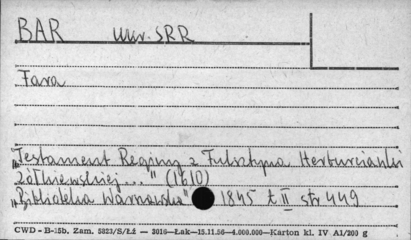 BAR ukr. SRR
Fara
"Testament Reginy z Fulsztyna Herburcianki
Żółkiewskiej..." (1610)
"Biblioteka Warszawska" 1845 t II str 449
CWD - B-15b. Zam. 5823/S/Łż — 3016—Łok—15.11.56—4.000.000—Karton kl. IV A1/200 g